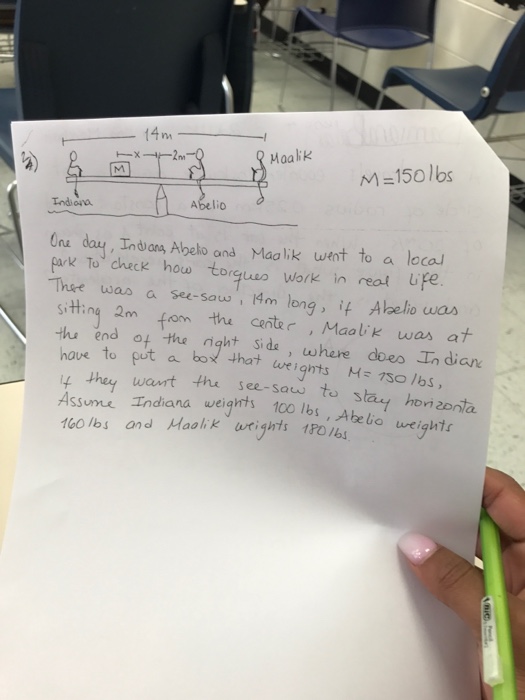 14m
x
2m
M
Maalik
M=150lbs
Indiana
Abelio
One day, Indiana, Abelio and Maalik went to a local
park to check how torques work in real life.
There was a see-saw, 14m long, if Abelio was
sitting 2m from the center, Maalik was at
the end of the right side, where does Indiana
have to put a box that weights M=150lbs,
if they want the see-saw to stay horizonta
Assume Indiana weights 100lbs, Abelio weights
160lbs and Maalik weights 180lbs.
BIC